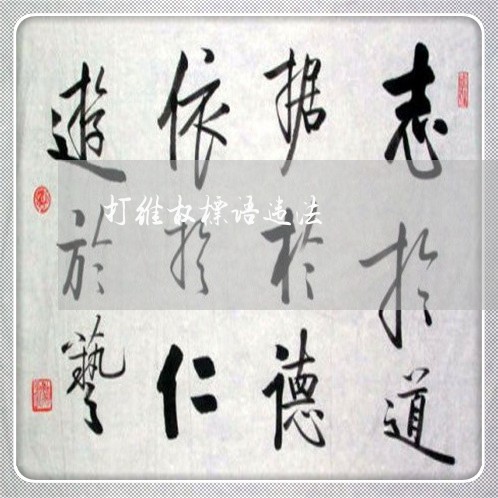 志於道
据於德
依於仁
遊於藝
打维权标语违法